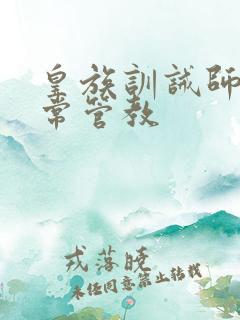 皇族訓誡師日
常管教
戎落晚
未经同意禁止转载